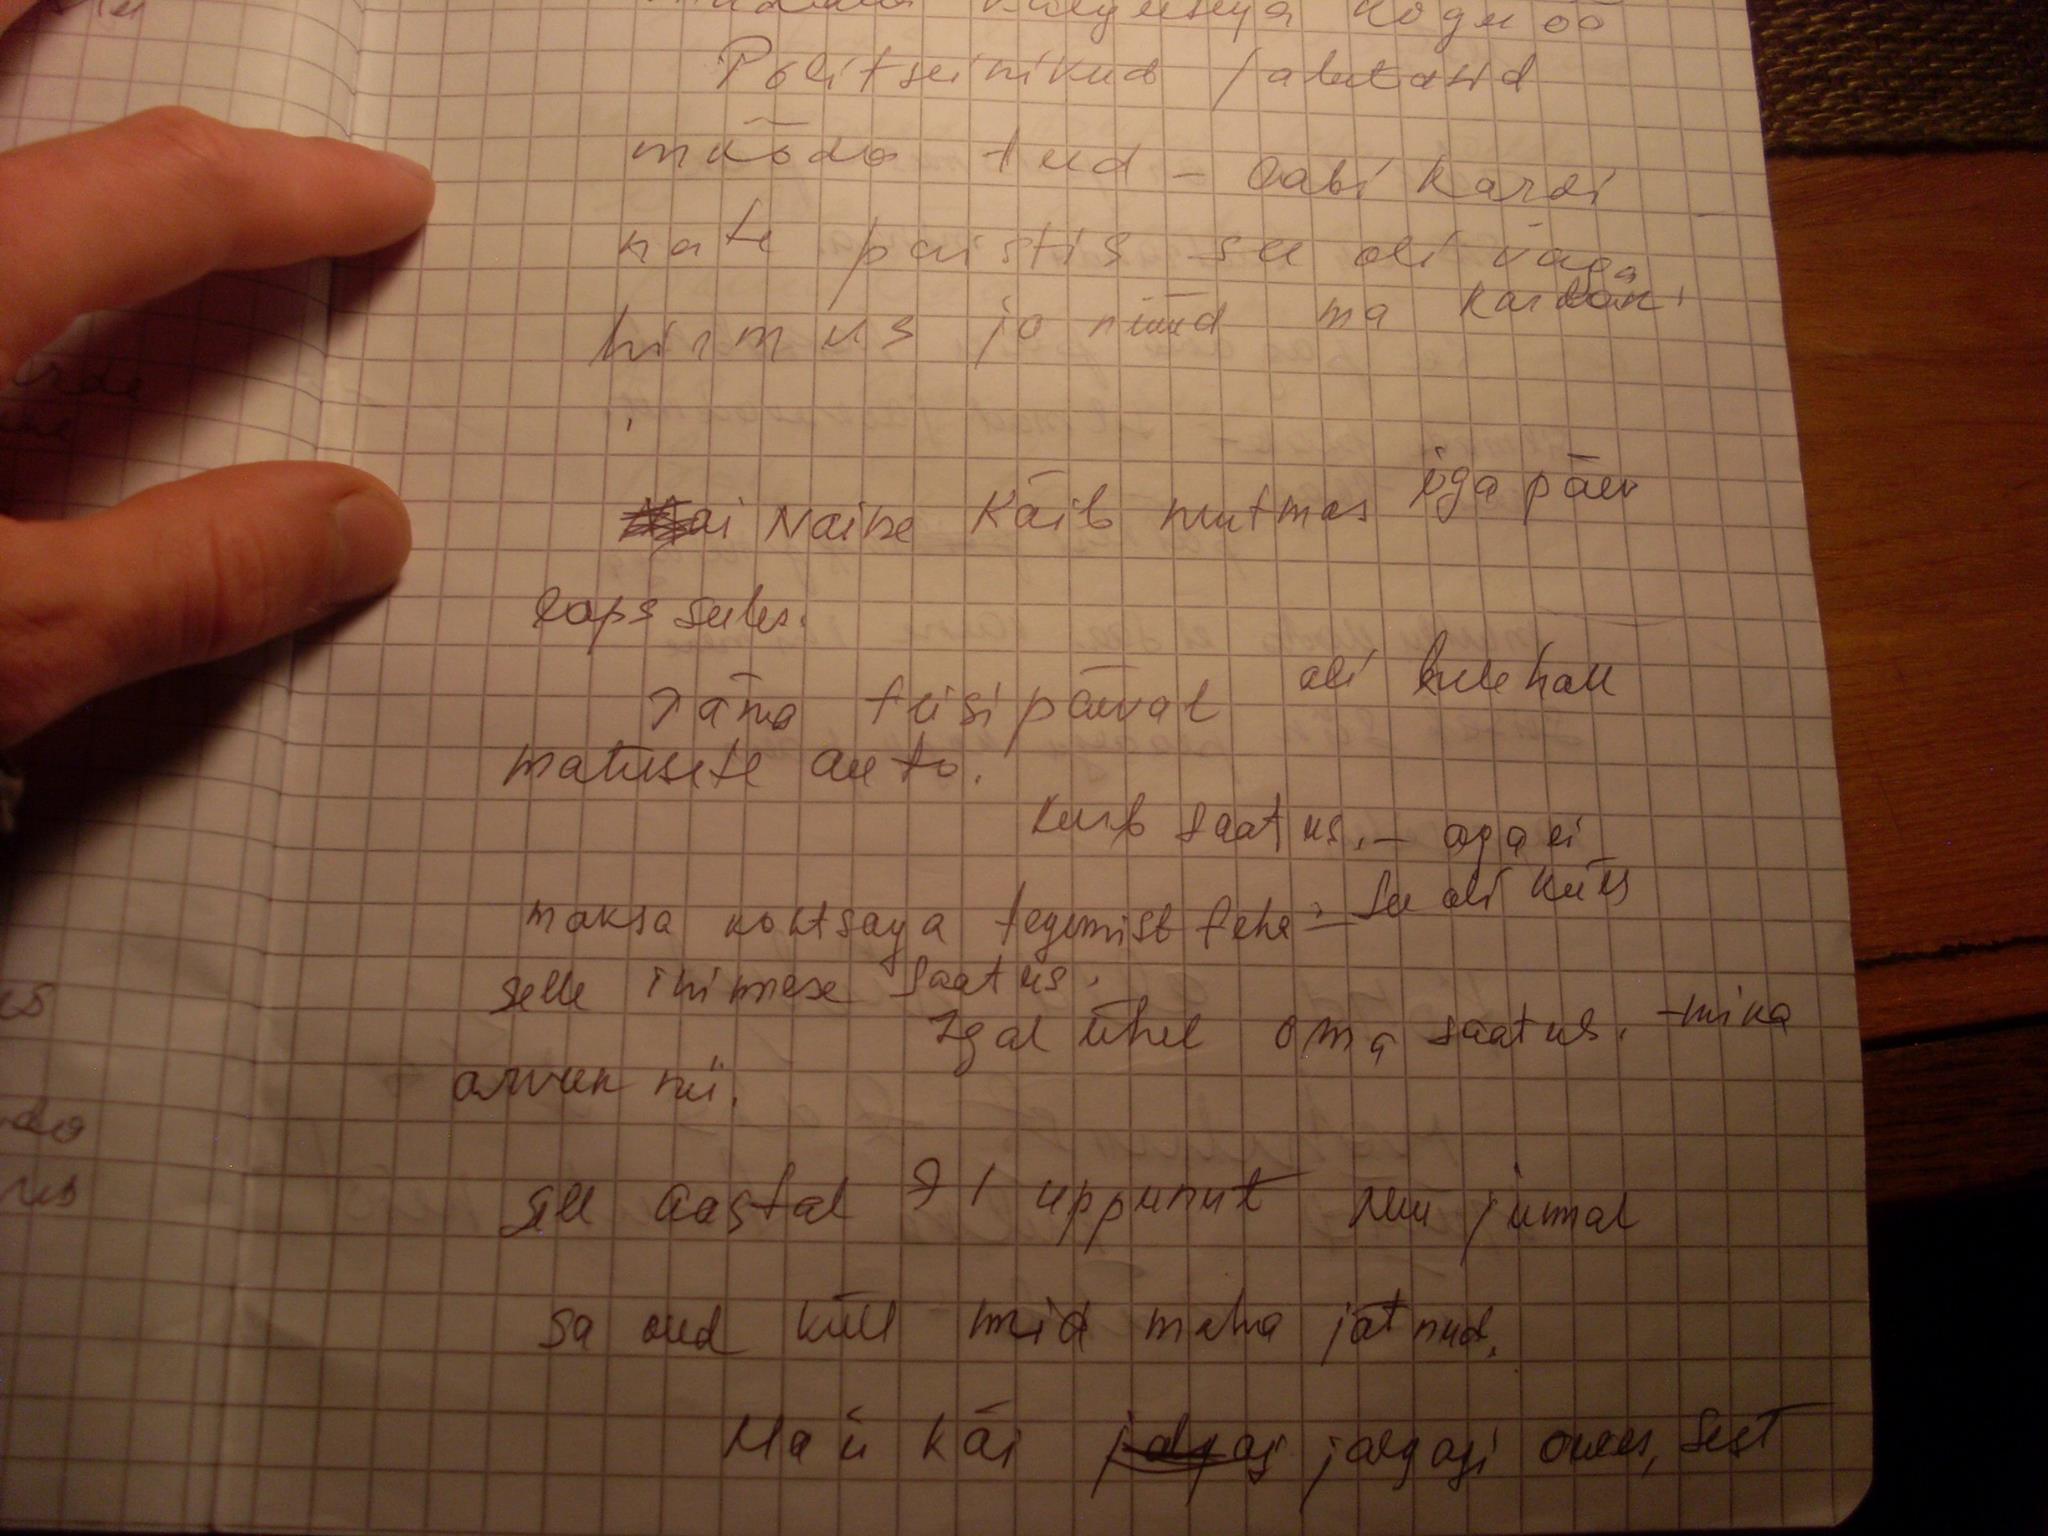 kogu öö
Politseinikud jalutasid
müöda teed - läbi kardi
nate paistis see oli väga
hirmus ja nüüd ma kardan.
ai Naine käib nutmas iga päev
laps seeles.
Täna teisipäeval oli hele hall
matusete auto.
Kurb saatus. - aga ei
maksa kohtsaga tegemist teha - See oli küis
selle inimese saatus.
Igal ühel oma saatus. - mina
arvan nii.
Sell aastal 71 uppunut Meu jumal
sa oled küll meid maha jätnud.
Ma ei käi jalgagi õues, sest